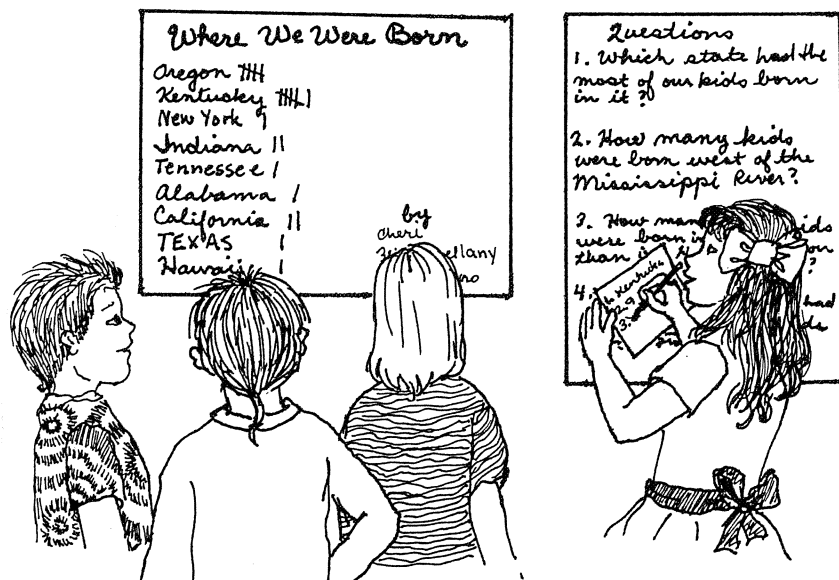 Where We Were Born
Oregon 卌
Kentucky 卌 |
New York |
Indiana ||
Tennessee |
Alabama |
California ||
TEXAS |
Hawaii |
by
Cheri
ellany
Questions
1. Which state had the
most of our kids born
in it?
2. How many kids
were born west of the
Mississippi River?
3. How man kids
were born i
than i ?
4. had
1. Kentucky
2. 9
3.